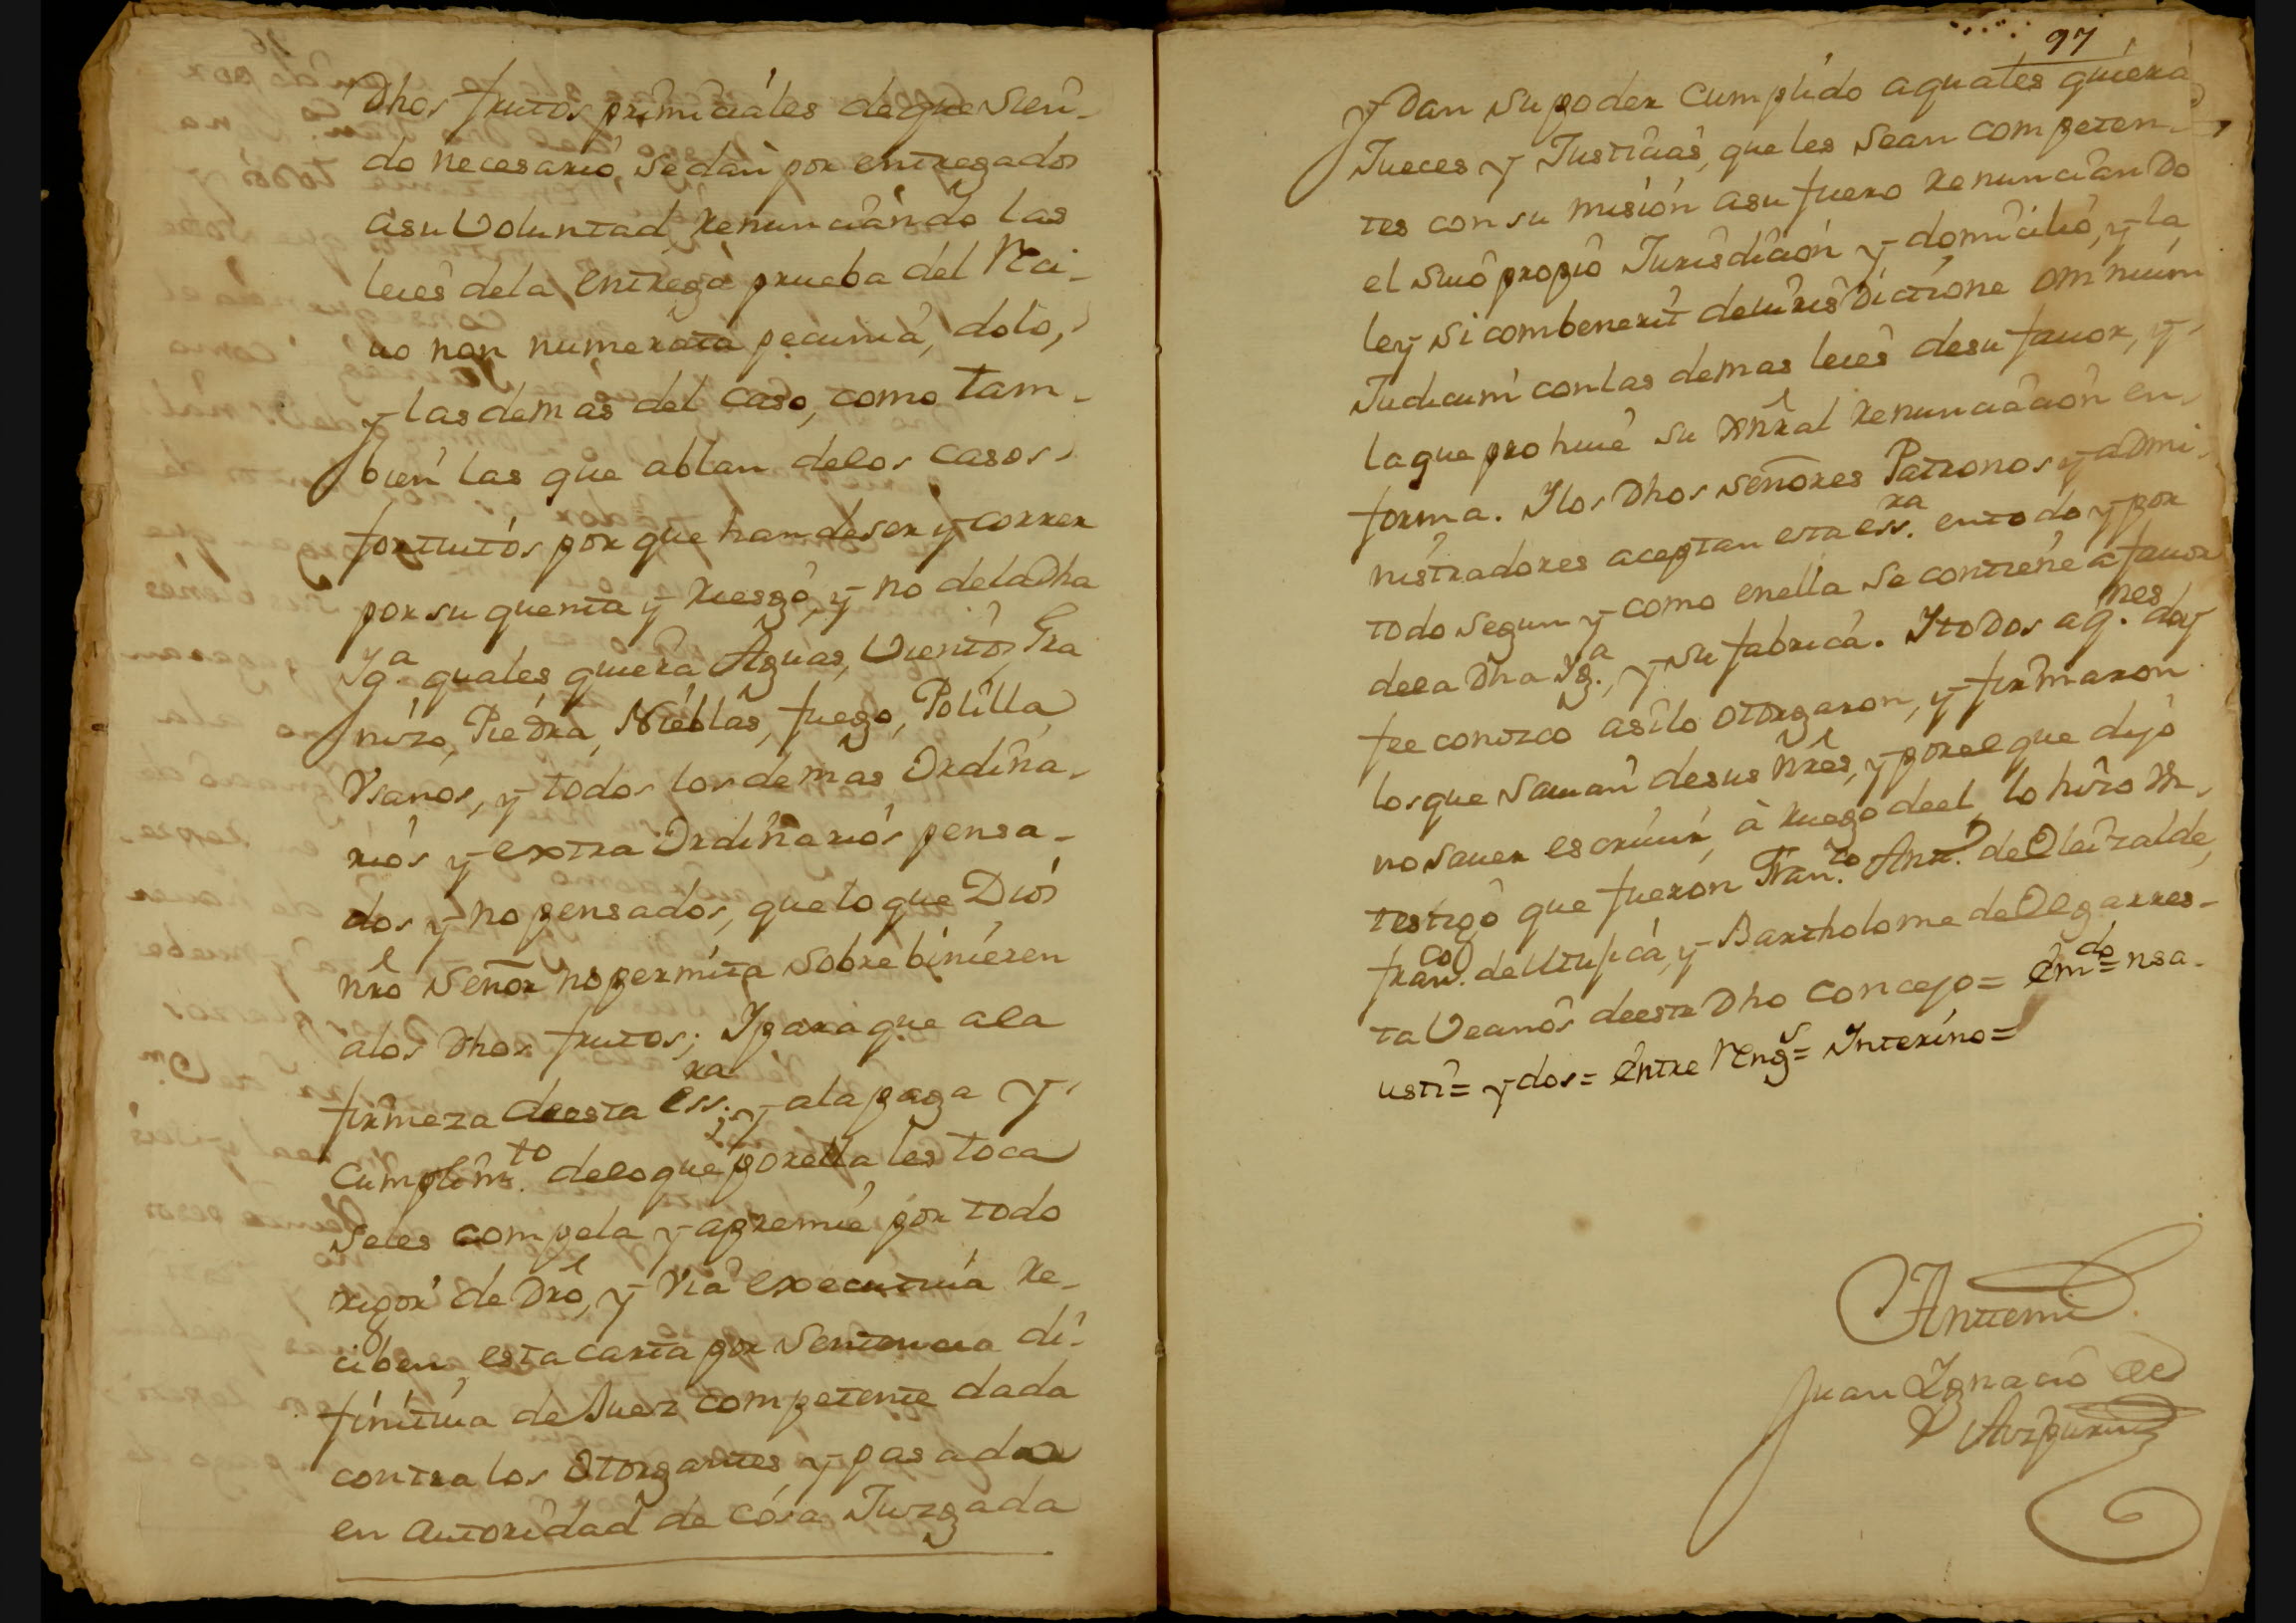 Dhos frutos primiciales de que Sien-
do necesario, se dan por entregados
asu Voluntad, Renunciando las
leies dela entrega prueba del Reci-
uo non numerata pecunia, dolo,
y las demas del caso, como tam-
bien las que ablan delos casos
fortuitos por que han de ser y correr
por su quenta y Riesgo, y no dela Dha
Yg.ª quales quiera Aguas, Vientos, Gra
nizo, Piedra, Nieblas, fuego, Polilla,
Vsanos, y todos los demas Ordina-
rios y extra Ordinarios pensa-
dos y no pensados, que lo que Dios
nrõ Señor no permita sobre binieren
alos Dhos frutos; Y para que ala
firmeza deesta ess.ra y ala paga y
cumplim.to delo que por ella les toca
Seles compela y apremie por todo
rigor de Drõ, y Via executiua Re-
ciben, esta carta por Sentencia di-
finitiua de Juez competente dada
contra los Otorgantes, y pasada
en autoridad de cosa Juzgada
97
y Dan Su poder Cumplido aquales quiera
Jueces y Justicias, que les Sean competen-
tes con su mision asu fuero Renunciando
el Suio propio Jurisdicion y domicilio, y la
ley Si combenerit deiurisdictione omnium
Judicum con las demas leies desu fauor, y
la que prohiue su Gñral Renunciacion en
forma. Y los Dhos Señores Patronos y admi-
nistradores aceptan esta ess.ra en todo y por
todo segun y como enella se contiene a fauor
dela Dha Yg.ª, y su fabrica. Y todos aq.nes doy
fee conozco asi lo Otorgaron, y firmaron
los que Sauian desus Nres, y por el que dijo
no Sauer escriuir, à Ruego de el, lo hizo Vn
testigo que fueron Fran.co Ant.º de Oleizalde,
fran.co de Utupica, y Bartholome de Olgarres-
ta Vecinos deeste Dho Concejo = Em.do = nsa-
usti = y dos = Entre Reng.s = Interino =
Antemi
Juan Ygnacio de
Aizpuru